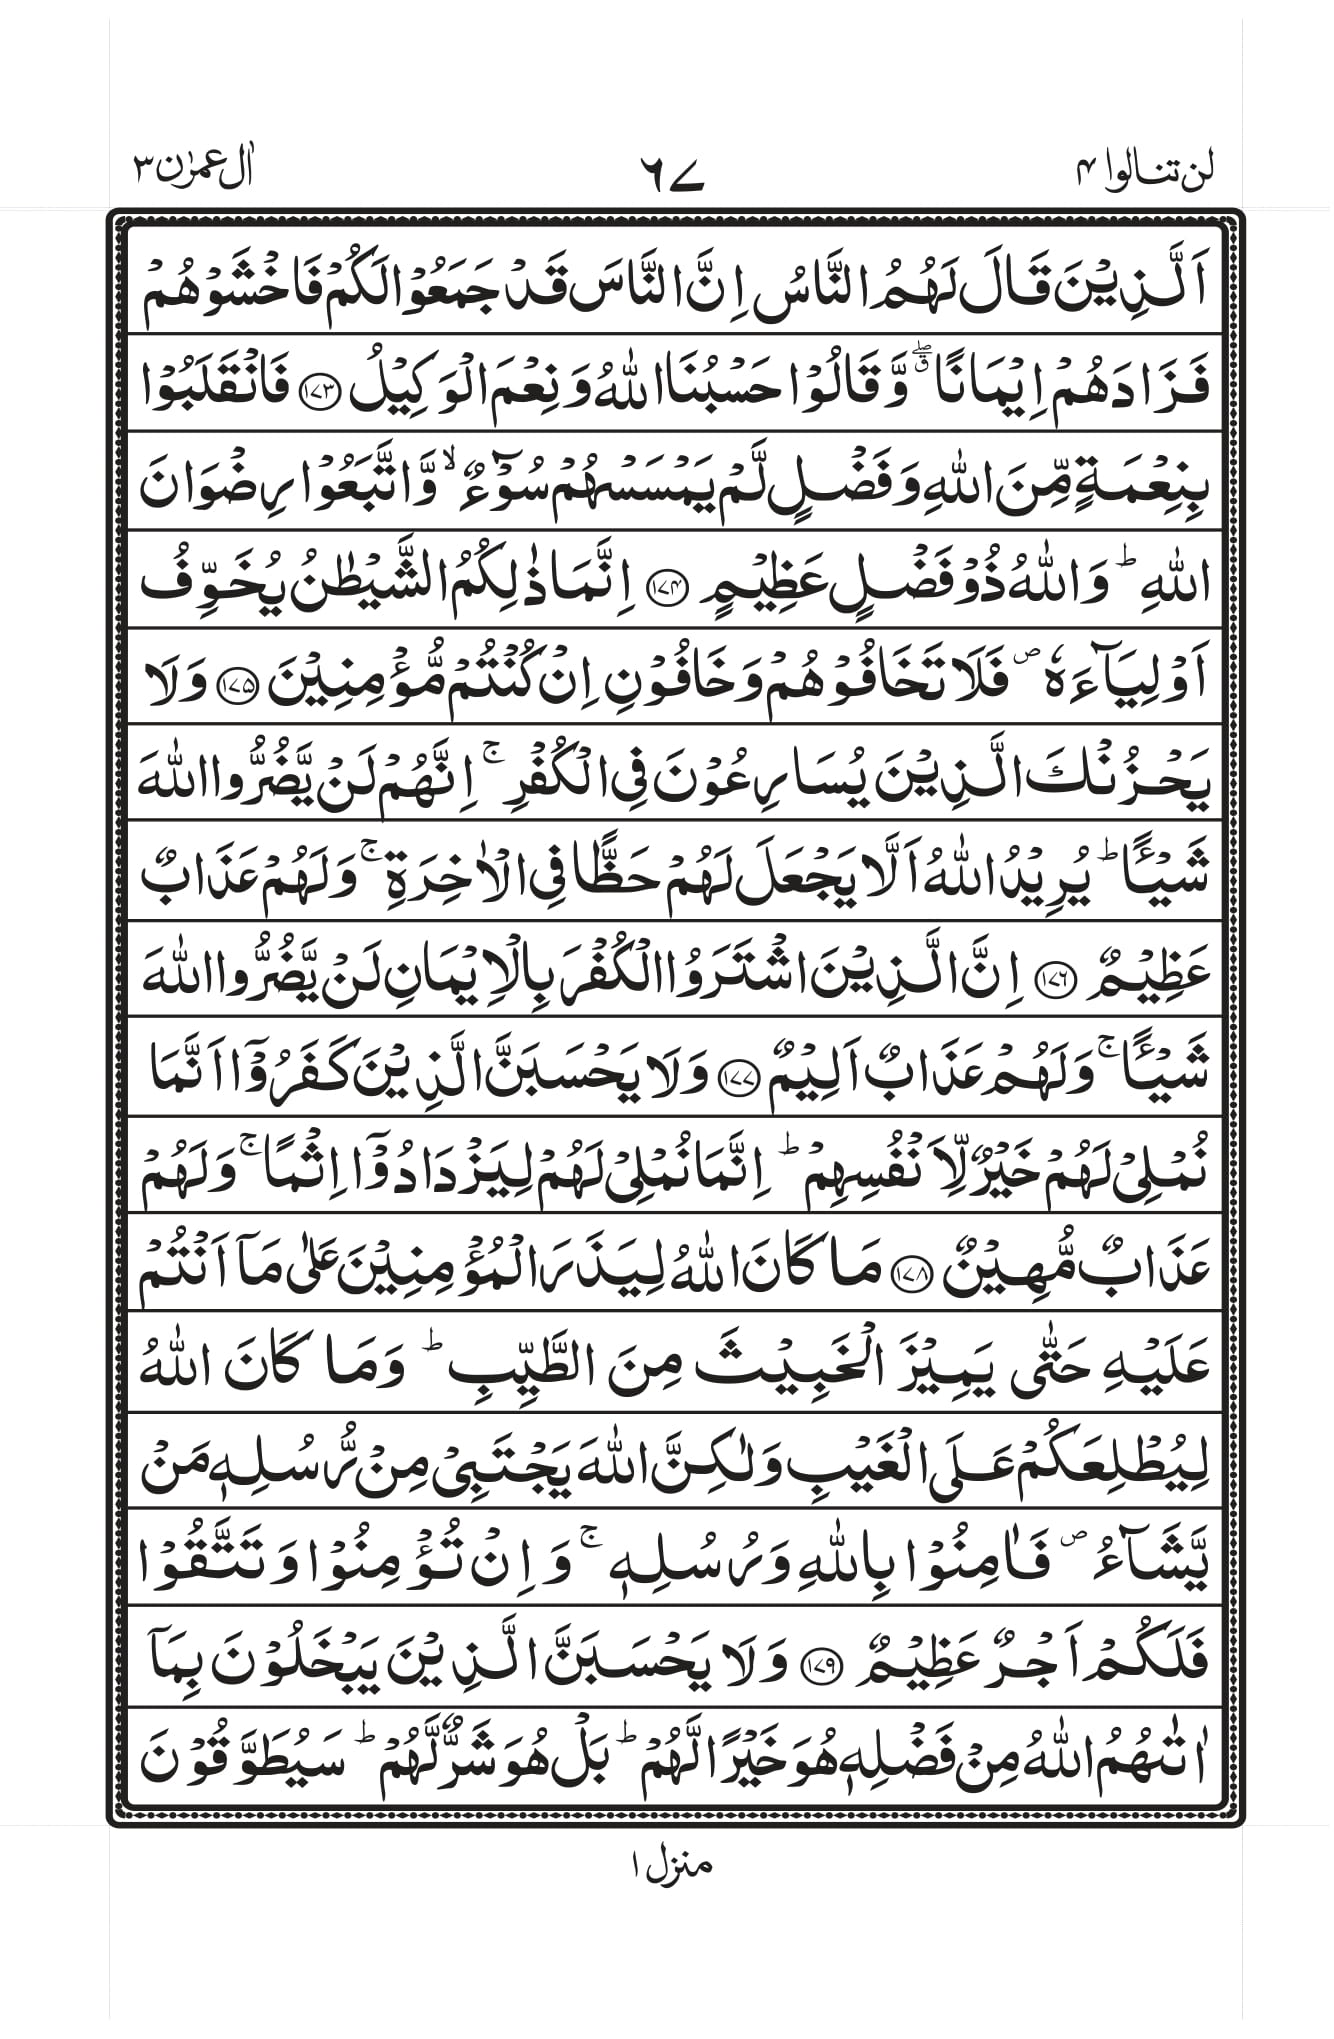 لن تنالوا ۴
٦٧
اٰل عمرٰن ۳
اَلَّذِيْنَ قَالَ لَهُمُ النَّاسُ اِنَّ النَّاسَ قَدْ جَمَعُوْا لَكُمْ فَاخْشَوْهُمْ
فَزَادَهُمْ اِيْمَانًا ۖۗ وَّقَالُوْا حَسْبُنَا اللّٰهُ وَنِعْمَ الْوَكِيْلُ ﴿۱۷۳﴾ فَانْقَلَبُوْا
بِنِعْمَةٍ مِّنَ اللّٰهِ وَفَضْلٍ لَّمْ يَمْسَسْهُمْ سُوْٓءٌ ۙ وَّاتَّبَعُوْا رِضْوَانَ
اللّٰهِ ؕ وَاللّٰهُ ذُوْ فَضْلٍ عَظِيْمٍ ﴿۱۷۴﴾ اِنَّمَا ذٰلِكُمُ الشَّيْطٰنُ يُخَوِّفُ
اَوْلِيَآءَهٗ ۪ فَلَا تَخَافُوْهُمْ وَخَافُوْنِ اِنْ كُنْتُمْ مُّؤْمِنِيْنَ ﴿۱۷۵﴾ وَلَا
يَحْزُنْكَ الَّذِيْنَ يُسَارِعُوْنَ فِى الْكُفْرِ ۚ اِنَّهُمْ لَنْ يَّضُرُّوا اللّٰهَ
شَيْـًٔا ؕ يُرِيْدُ اللّٰهُ اَلَّا يَجْعَلَ لَهُمْ حَظًّا فِى الْاٰخِرَةِ ۚ وَلَهُمْ عَذَابٌ
عَظِيْمٌ ﴿۱۷۶﴾ اِنَّ الَّذِيْنَ اشْتَرَوُا الْكُفْرَ بِالْاِيْمَانِ لَنْ يَّضُرُّوا اللّٰهَ
شَيْـًٔا ۚ وَلَهُمْ عَذَابٌ اَلِيْمٌ ﴿۱۷۷﴾ وَلَا يَحْسَبَنَّ الَّذِيْنَ كَفَرُوْٓا اَنَّمَا
نُمْلِىْ لَهُمْ خَيْرٌ لِّاَنْفُسِهِمْ ؕ اِنَّمَا نُمْلِىْ لَهُمْ لِيَزْدَادُوْٓا اِثْمًا ۚ وَلَهُمْ
عَذَابٌ مُّهِيْنٌ ﴿۱۷۸﴾ مَا كَانَ اللّٰهُ لِيَذَرَ الْمُؤْمِنِيْنَ عَلٰى مَآ اَنْتُمْ
عَلَيْهِ حَتّٰى يَمِيْزَ الْخَبِيْثَ مِنَ الطَّيِّبِ ؕ وَمَا كَانَ اللّٰهُ
لِيُطْلِعَكُمْ عَلَى الْغَيْبِ وَلٰكِنَّ اللّٰهَ يَجْتَبِىْ مِنْ رُّسُلِهٖ مَنْ
يَّشَآءُ ۪ فَاٰمِنُوْا بِاللّٰهِ وَرُسُلِهٖ ۚ وَاِنْ تُؤْمِنُوْا وَتَتَّقُوْا
فَلَكُمْ اَجْرٌ عَظِيْمٌ ﴿۱۷۹﴾ وَلَا يَحْسَبَنَّ الَّذِيْنَ يَبْخَلُوْنَ بِمَآ
اٰتٰىهُمُ اللّٰهُ مِنْ فَضْلِهٖ هُوَ خَيْرًا لَّهُمْ ؕ بَلْ هُوَ شَرٌّ لَّهُمْ ؕ سَيُطَوَّقُوْنَ
منزل ۱